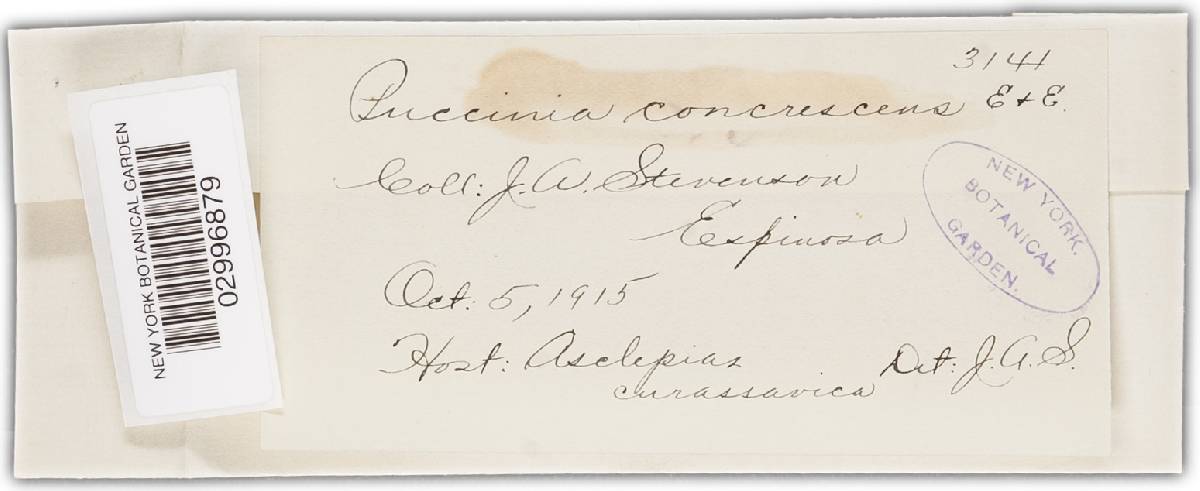 3141
Puccinia concrescens E & E.
Coll: J. A. Stevenson
Espinosa
Oct. 5, 1915
Host: Asclepias
curassavica
Det: J. A. S.
NEW YORK
BOTANICAL
GARDEN.
NEW YORK BOTANICAL GARDEN
02996879